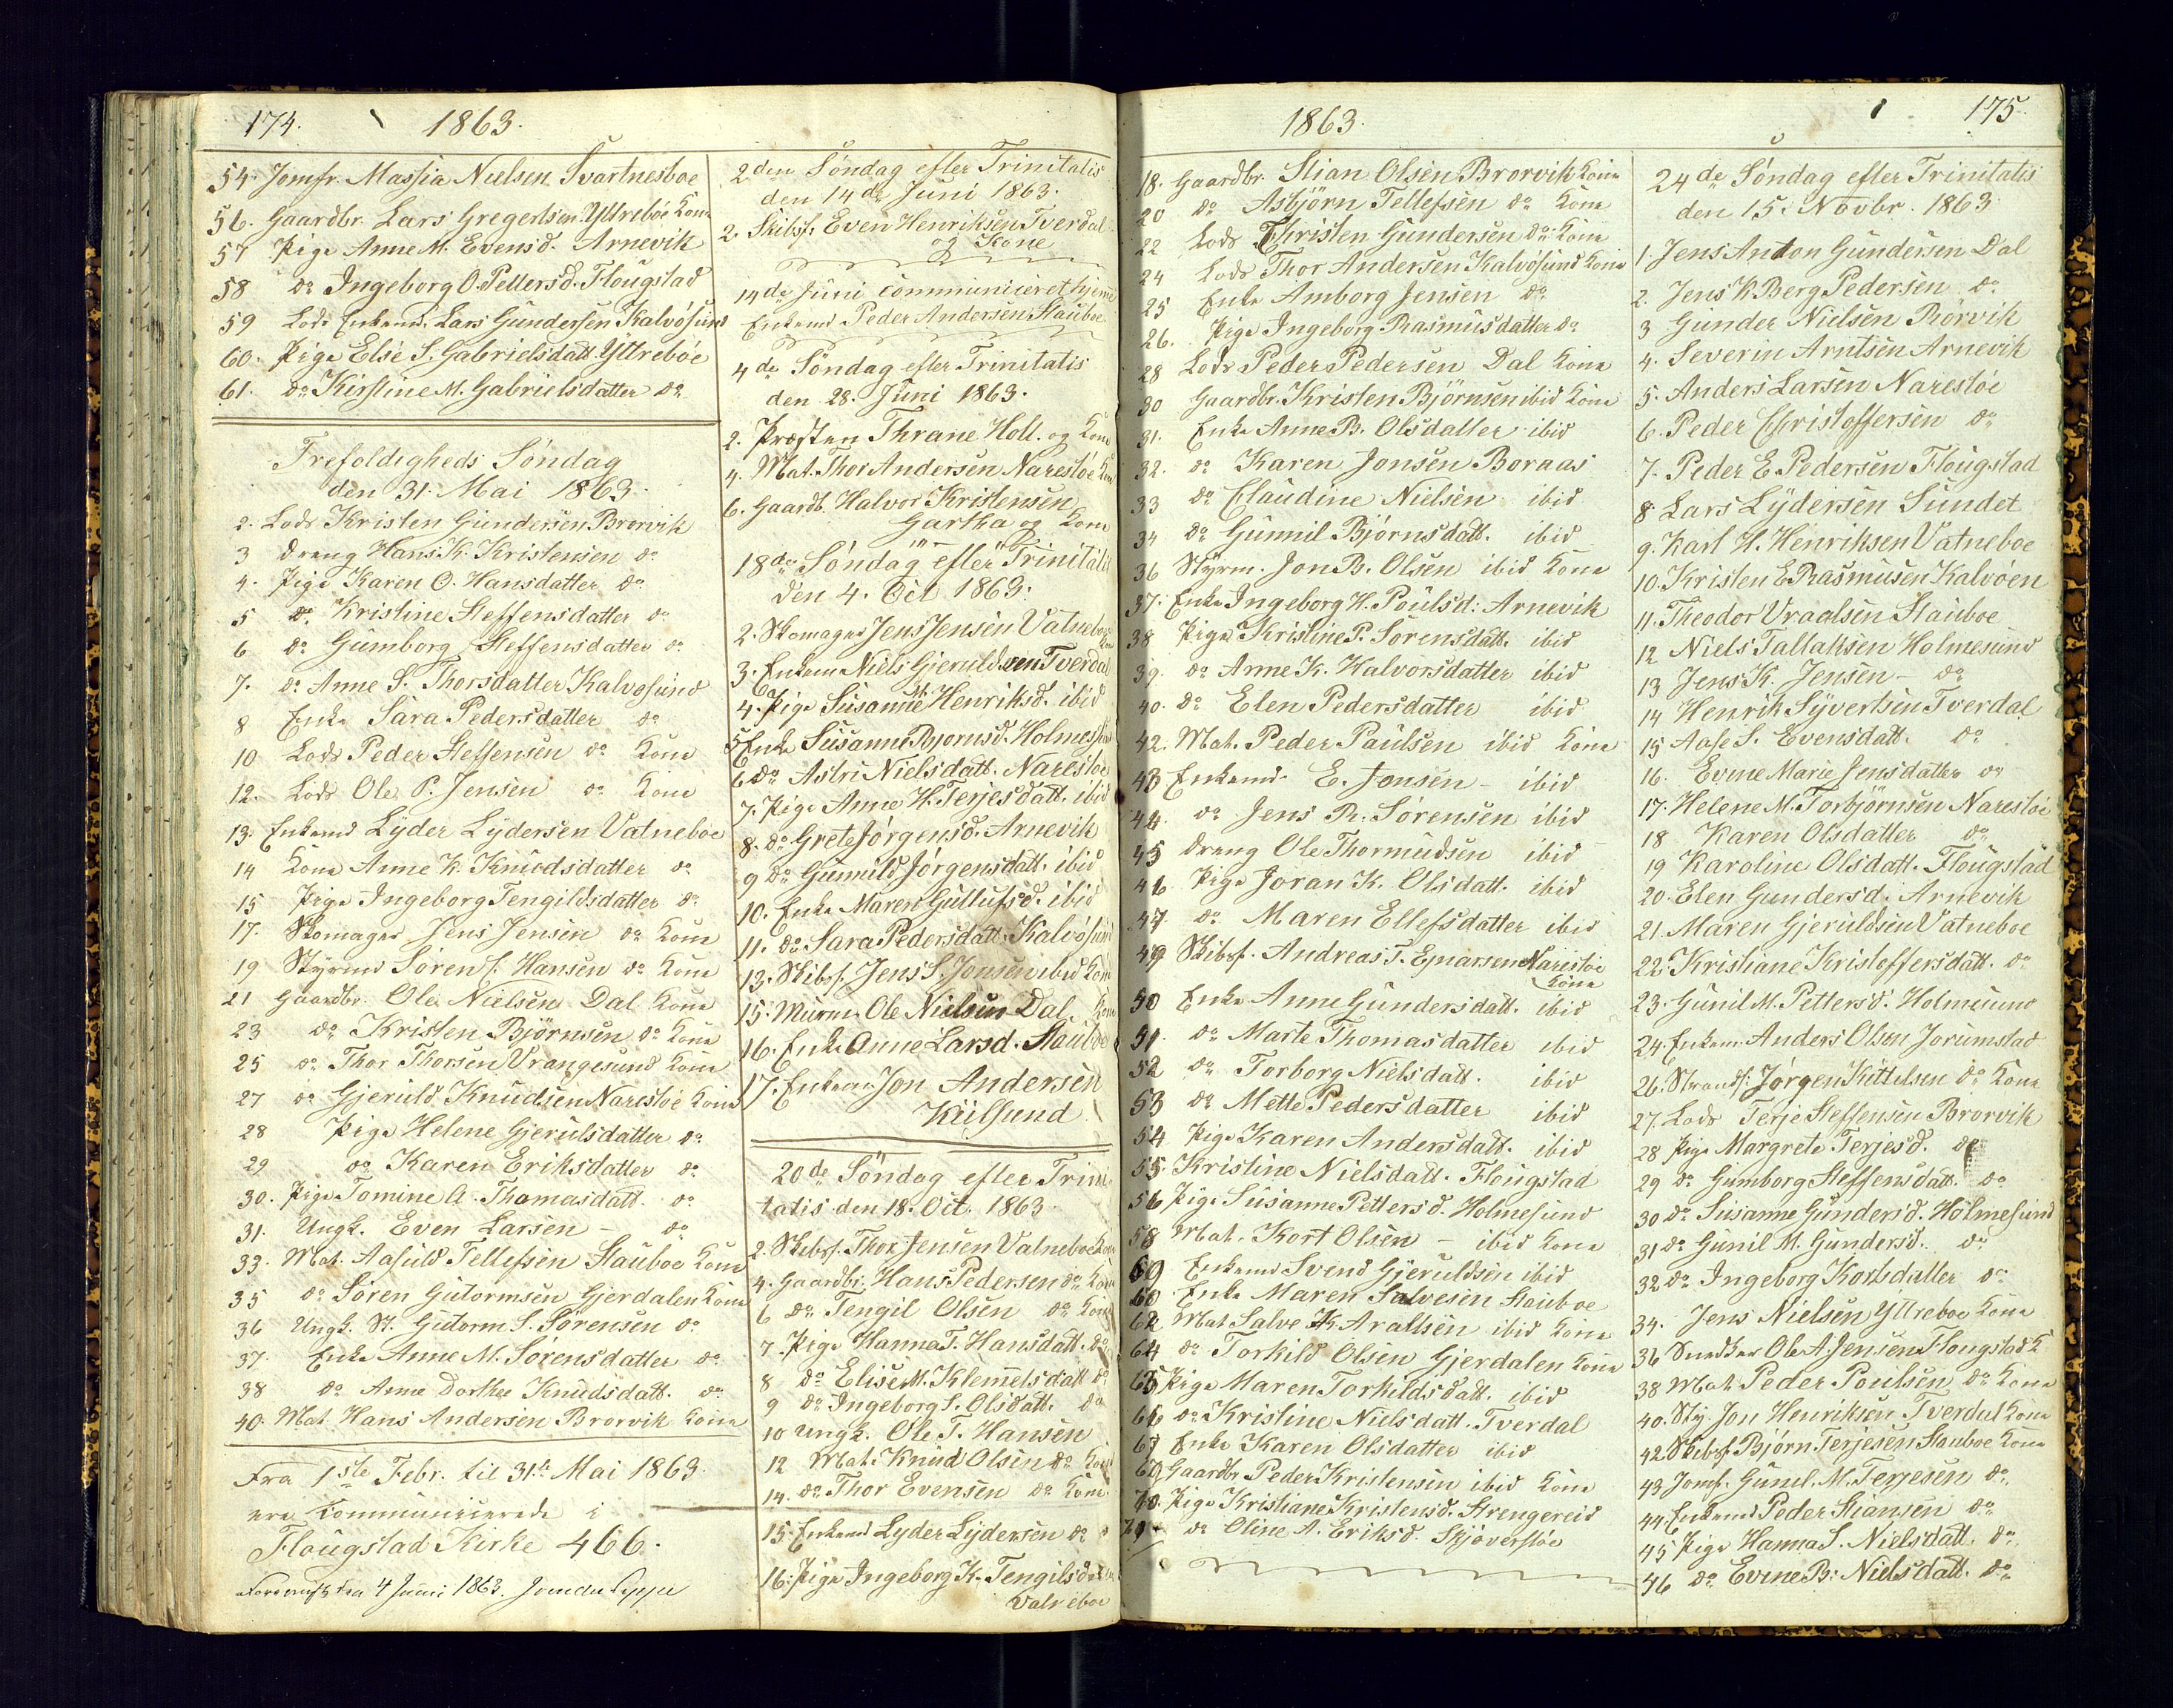 174. 1863.
54. Jomfr. Massia Nielsen Svartnesboe
56. Gaardbr. Lars Gregertsen Yttreboe Kone
57 Pige Anne M. Evensd. Arnevik
58 do Ingeborg O. Pettersd. Flougstad
59 Lods Enkemd. Lars Gundersen Kalvøsund
60. Pige Else S. Gabrielsdatt. Yttrebøe
61. do Kirstine M. Gabrielsdatter do
Trefoldigheds Søndag
den 31. Mai 1863.
2. Lods Kristen Gundersen Brorvik
3 Dreng Hans K. Kristensen do
4. Pige Karen O. Hansdatter do
5 do Kristine Steffensdatter do
6 do Gumborg Steffensdatter do
7. do Anne S. Thorsdatter Kalvøsund
8 Enke Sara Pedersdatter do
10 Lods Peder Steffensen do Kone
12. Lods Ole P. Jensen do Kone
13. Enkemd Lyder Lydersen Vatneboe
14 Kone Anne K. Knudsdatter do
15 Pige Ingeborg Tengildsdatter do
17. Skomager Jens Jensen do Kone
19 Styrmd Søren J. Hansen do Kone
21 Gaardbr. Ole Nielsen Dal Kone
23 do Kristen Bjørnsen do Kone
25 do Thor Thorsen Vrangesund Kone
27 do Gjeruld Knudsen Narestøe Kone
28 Pige Helene Gjerulsdatter do
29 do Karen Eriksdatter do
30. Pige Tomine A. Thomasdatt. do
31. Ungk. Even Larsen - do
33. Mat. Aasuld Tellefsen Stauboe Kone
35 do Søren Gutormsen Gjerdalen Kone
36 Ungk. St. Gutorm S. Sørensen do
37. Enke Anne M. Sørensdatter do
38 do Anne Dorthee Knudsdatt. do
40. Mat Hans Andersen Brorvik Kone
Fra 1ste Febr. til 31te Mai 1863.
ere Communicerede i
Flougstad Kirke 466.
4 Juni 1863.
2den Søndag efter Trinitatis
den 14de Juni 1863.
2. Skibsf. Even Henriksen Tverdal
og Kone
14de Juni communiceret hjemme
Enkemd Peder Andersen Stauboe
4de Søndag efter Trinitatis
den 28. Juni 1863.
2. Præsten Thrane Holt. og Kone
4. Mat. Thor Andersen Narestøe Kone
6. Gaardb. Halvor Kristensen
Gartha og Kone
18de Søndag efter Trinitatis
den 4. Oct 1863.
2. Skomager Jens Jensen Vatneboe
3. Enkem Niels Gjeruldsen Tverdal
4. Pige Susanne M. Henriksd. ibid
5 Enke Susanne Bjornsd. Holmesund
6 do Astri Nielsdatt. Narestoe
7. Pige Anne H. Terjesdatt. ibid
8. do Grete Jørgensd. Arnevik
9 do Gunnild Jørgensdatt. ibid
10. Enke Maren Gullufsd. ibid
11. do Sara Pedersdatt. Kalvøsund
13. Skibsf. Jens S. Jonsen ibid Kone
15. Murm. Ole Nielsen Dal. Kone
16. Enke Anne Larsd. Stauboe
17. Enkem Jon Andersen
Kiilsund
20de Søndag efter Trini-
tatis den 18. Oct. 1863.
2. Skibsf. Thor Jensen Vatneboe Kone
4. Gaardbr. Hans Pedersen do Kone
6 do Tengil Olsen do Kone
7. Pige Hanna T. Hansdatt. do
8 do Elise M. Klemetsdatt do
9 do Ingeborg S. Olsdatt. do
10 Ungk. Ole T. Hansen
12 Mat. Knud Olsen do Kone
14. do Thor Evensen do Kone
15. Enkemd Lyder Lydersen do
16. Pige Ingeborg K. Tengilsdatt
Vatneboe
1863. 175.
18. Gaardbr. Stian Olsen Brorvik Kone
20 do Asbjörn Tellefsen do Kone
22 Lods Christen Gundersen do Kone
24 Lods Thor Andersen Kalvøsund Kone
25 Enke Amborg Jensen do
26. Pige Ingeborg Rasmusdatter do
28 Lods Peder Pedersen Dal Kone
30 Gaardbr. Kristen Björnsen ibid Kone
31. Enke Anne B. Olsdatter ibid
32. do Karen Jonsen Boraas
33 do Claudine Nielsen ibid
34 do Gunnil Bjørnsdatt. ibid
36 Styrm. Jon B. Olsen ibid Kone
37. Enke Ingeborg H. Poulsd. Arnevik
38 Pige Kristine P. Sorensdatt. ibid
39. do Anne K. Halvorsdatter ibid
40. do Elen Pedersdatter ibid
42. Mat. Peder Paulsen ibid Kone
43 Enkemd. E. Jonsen - ibid
44. do Jens R. Sørensen ibid
45 Dreng Ole Thormudsen ibid
46 Pige Joran K. Olsdatt. ibid
47. do Maren Ellefsdatter ibid
49 Skibsf. Andreas T. Ejnarsen Narestøe
Kone
50 Enke Anne Gundersdatt. ibid
51. do Marte Thomasdatter ibid
52 do Torborg Nielsdatt. ibid
53 do Mette Pedersdatter ibid
54 Pige Karen Andersdatt. ibid
55. Kristine Nielsdatt. Flougstad
56 Pige Susanne Pettersd. Holmesund
58 Mat. Kort Olsen - ibid Kone
59 Enkemd Svend Gjeruldsen ibid
60 Enke Maren Salvesen Stauboe
62 Mat Salve K Arallsen ibid Kone
64 do Torkild Olsen Gjerdalen Kone
65 Pige Maren Torkildsdatt. ibid
66 do Kristine Nielsdatt. Tverdal
67 Enke Karen Olsdatter ibid
69 Gaardbr Peder Kristensen ibid Kone
70. Pige Kristiane Kristensd. Strengereid
71 do Oline A. Eriksd. Skjøverstøe
24de Søndag efter Trinitatis
den 15. Novbr. 1863
1. Jens Anton Gundersen Dal
2. Jens K. Berg Pedersen do
3 Gunder Nielsen Rørvik
4. Severin Arntsen Arnevik
5. Anders Larsen Narestøe
6. Peder Christoffersen do
7. Peder E. Pedersen Flougstad
8 Lars Lydersen Sundet
9. Karl H. Henriksen Vatneboe
10. Kristen E. Rasmusen Kalvøen
11. Theodor Vraalsen Stauboe
12 Niels Tallaksen Holmesund
13 Jens K. Jensen - do
14 Henrik Syvertsen Tverdal
15 Aase S. Evensdatt. do
16. Evine Marie Jensdatter do
17. Helene M. Torbjörnsen Narestøe
18 Karen Olsdatter do
19 Karoline Olsdatt. Flougstad
20. Elen Gundersd. Arnevik
21. Maren Gjeruldsen Vatneboe
22. Kristiane Kristoffersdatt. do
23. Gunil M. Pettersd. Holmesund
24. Enkem. Anders Olsen Jorumstad
26. Strandf. Jørgen Kittelsen do Kone
27. Lods Terje Steffensen Brorvik
28 Pige Margrete Terjesd. do
29 do Gumborg Steffensdatt. do
30 do Susanne Gundersd. Holmesund
31 do Gunil M. Gundersd. do
32 do Ingeborg Kortsdatter do
34. Jens Nielsen Yttreboe Kone
36 Snedker Ole A. Jensen Flougstad K
38 Mat Peder Poulsen do Kone
40. Sty. Jon Henriksen Tverdal Kone
42 Skibsf. Bjørn Terjesen Stauboe Kone
43 Jomf. Gunil. M. Terjesen do
44. Enkemd Peder Stiansen do
45 Pige Hanna S. Nielsdatt. do
46 do Evine B. Nielsdatt. do